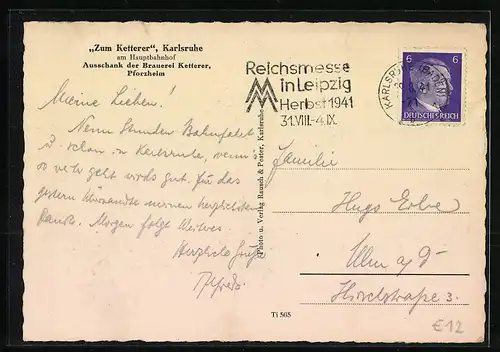 „Zum Ketterer", Karlsruhe
am Hauptbahnhof
Ausschank der Brauerei Ketterer,
Pforzheim
Reichsmesse
in Leipzig
Herbst 1941
31.VIII.-4.IX.
6 6
DEUTSCHES REICH
KARLSRUHE (BADEN)
Meine Lieben!
Neun Stunden Bahnfahrt
u schon in Karlsruhe, wenn's
so weiter geht wirds gut. Für das
gestern Gesandte meinen herzlichsten
Dank. Morgen folgt Weiteres
Herzliche Grüße
Alfred.
Photo u. Verlag Rausch & Pester, Karlsruhe
Familie
Hugo
Ulm a/D
Hirschstraße 3.
Ti 565
€12